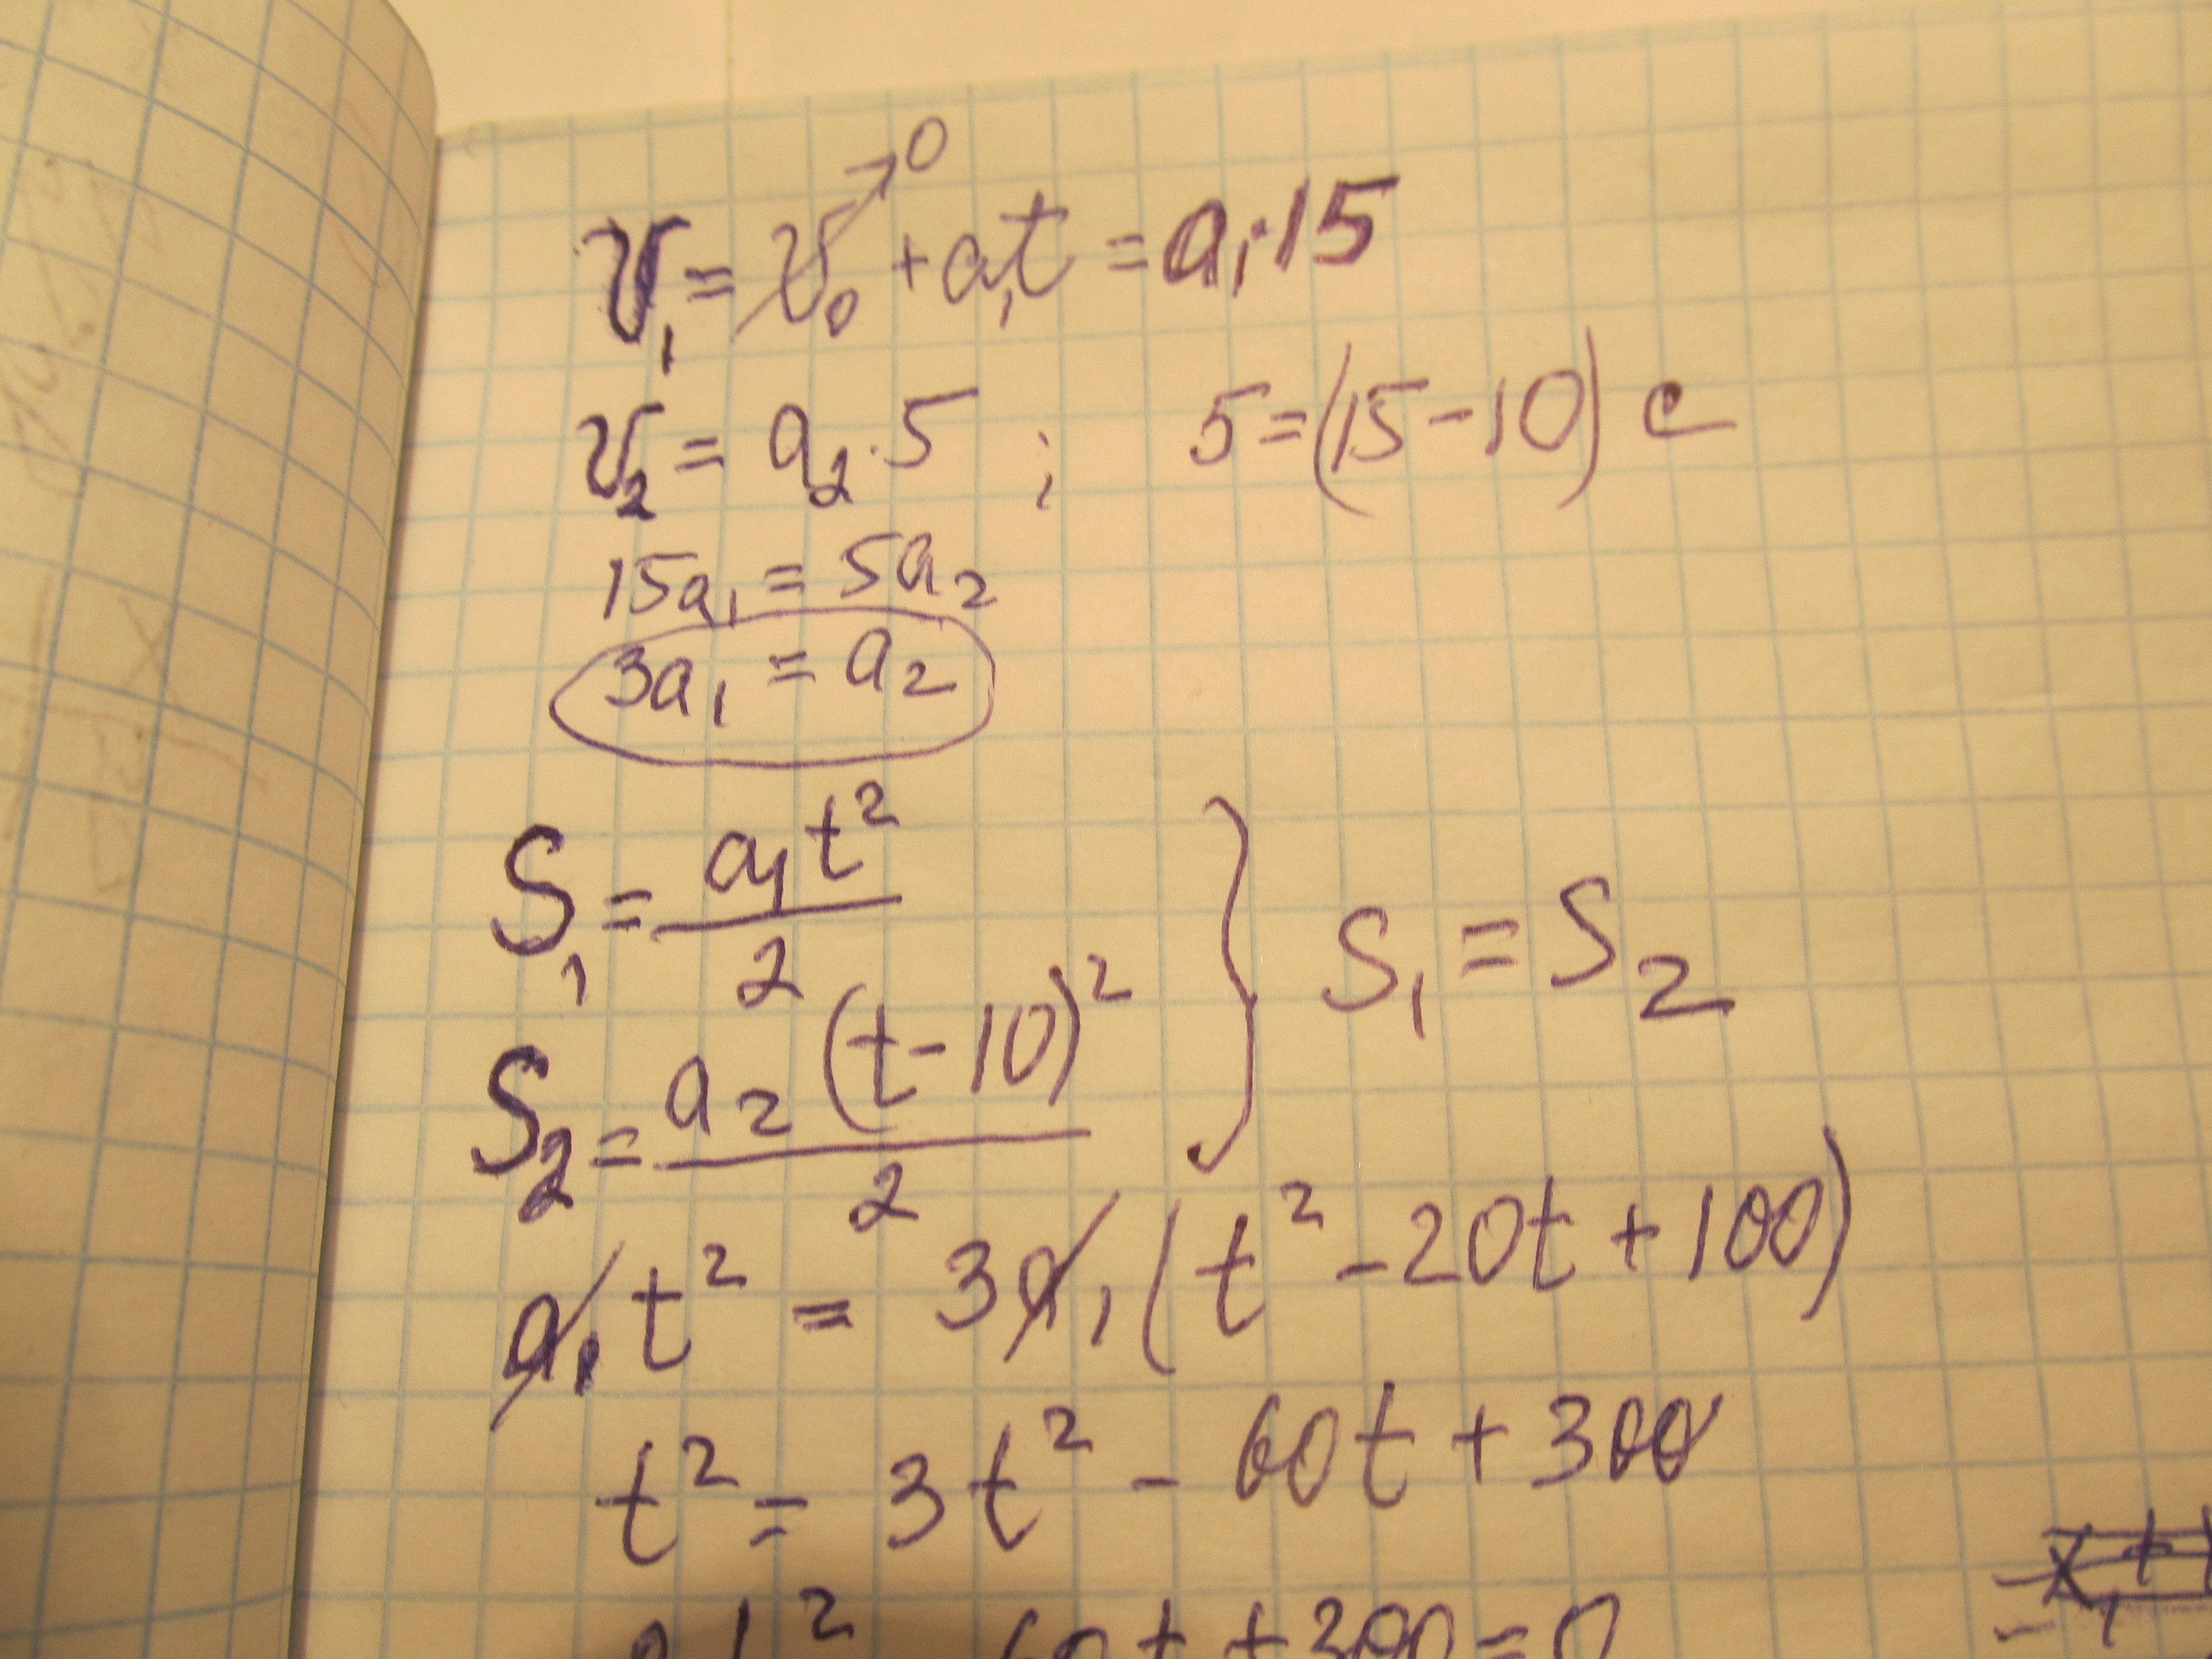 v₁ = v₀ → 0 + a₁t = a₁·15
v₂ = a₂·5 ; 5 = (15 - 10) c
15a₁ = 5a₂
3a₁ = a₂
S₁ = a₁t² / 2
S₂ = a₂(t - 10)² / 2
S₁ = S₂
a₁t² = 3a₁(t² - 20t + 100)
t² = 3t² - 60t + 300
2t² - 60t + 300 = 0